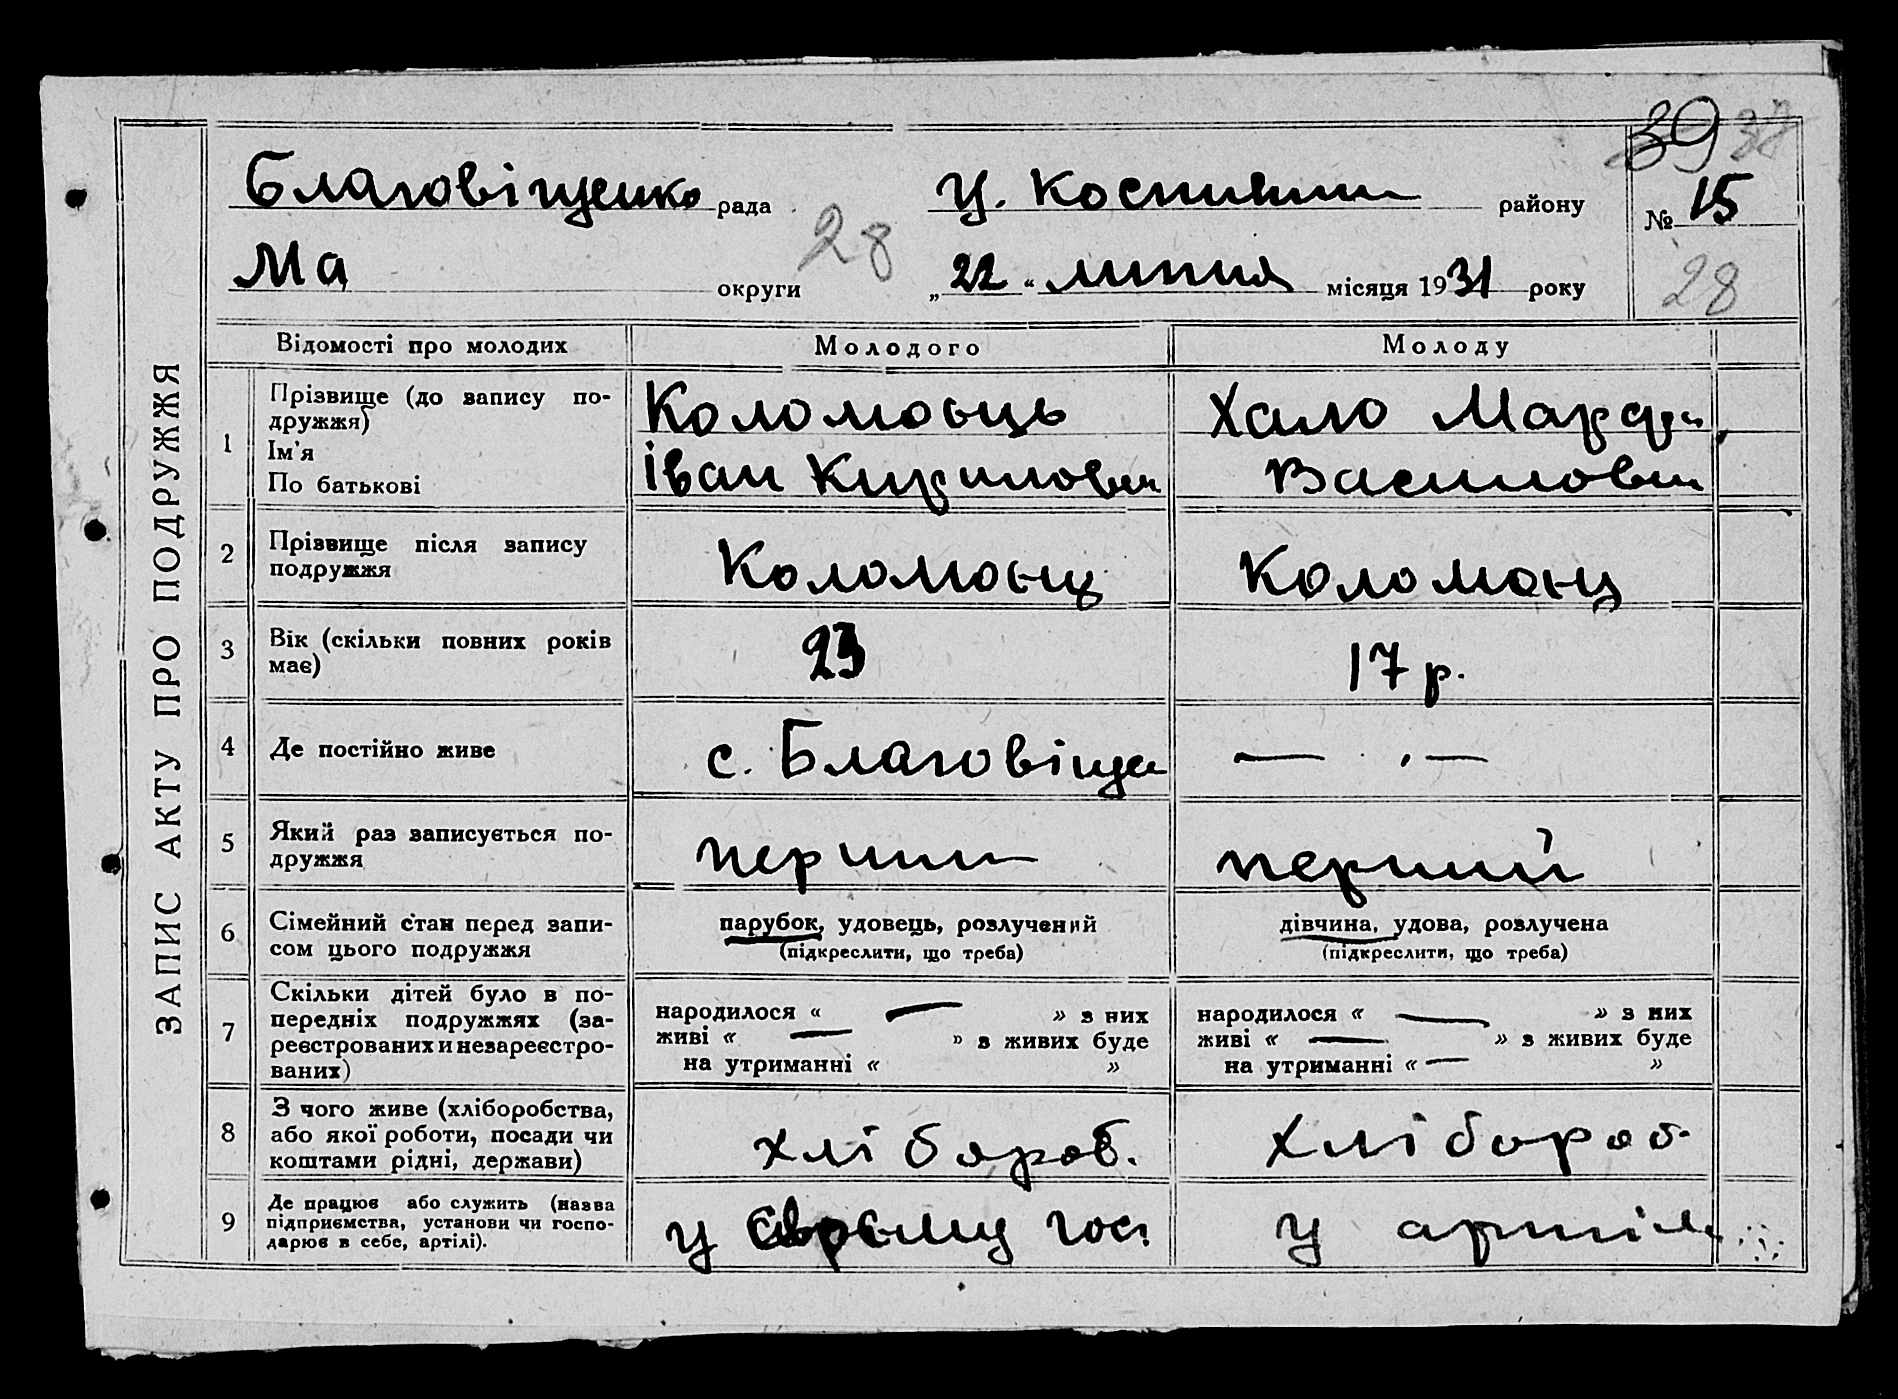 39 37
Благовіщенко рада У. Костянти району № 15
28
Ма округи „22" липня місяця 1931 року 28
ЗАПИС АКТУ ПРО ПОДРУЖЖЯ
Відомості про молодих Молодого Молоду
1 Прізвище (до запису по- Коломоєць Хало Марфи
дружжя)
Ім'я Іван Кирилович Василовн
По батькові
2 Прізвище після запису Коломоєц Коломоєц
подружжя
3 Вік (скільки повних років 23 17 р.
має)
4 Де постійно живе с. Благовіще — . —
5 Який раз записується по- перший перший
дружжя
6 Сімейний стан перед запи- парубок, удовець, розлучений дівчина, удова, розлучена
сом цього подружжя (підкреслити, що треба) (підкреслити, що треба)
7 Скільки дітей було в по- народилося « — » з них народилося « — » з них
передніх подружжях (за- живі « — » з живих буде живі « — » з живих буде
реєстрованих и незареєстро- на утриманні « » на утриманні « — »
ваних)
8 З чого живе (хліборобства, хлібороб. хлібороб.
або якої роботи, посади чи
коштами рідні, держави)
9 Де працює або служить (назва у своєму гос. у артілі
підприємства, установи чи госпо-
дарює в себе, артілі).